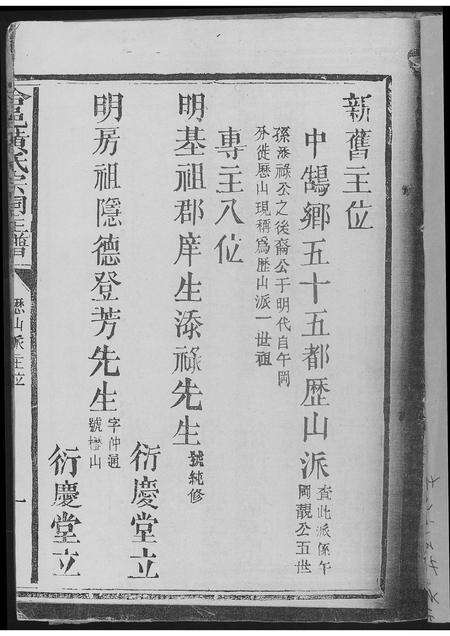 新舊主位
中鵠鄉五十五都歷山派 查此派係午岡靚公五世
孫添祿公之後裔公于明代自午岡
分徙歷山現稱為歷山派一世祖
專主八位
明基祖郡庠生添祿先生 號純修
衍慶堂立
明房祖隱德登芳先生 字仲通 號橙山
衍慶堂立
黃氏宗祠主譜
歷山派主位
一